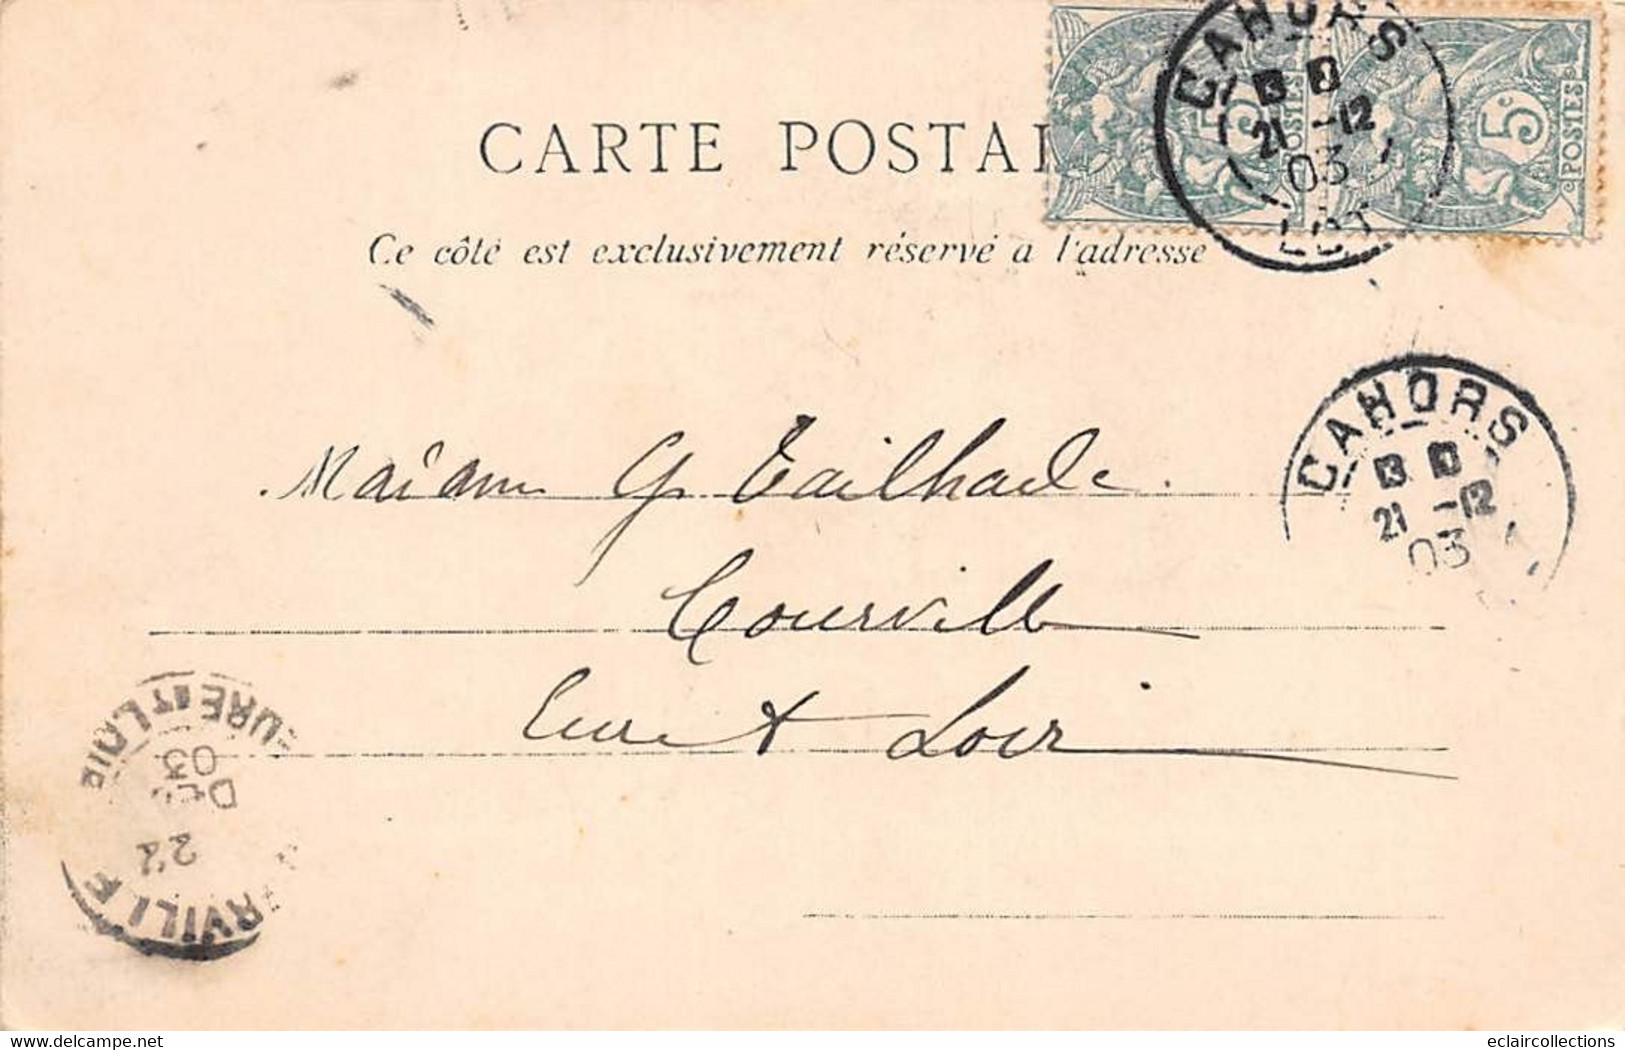 CARTE POSTAL
Ce côté est exclusivement réservé a l'adresse
CAHORS
21 -12
03
LOT
5c
POSTES
5c
POSTES
CAHORS
21 -12
03
Madame G Tailhade
Courville
Eure & Loir
EURE ET LOIR
DÉC
03
22
RVILLE
eclaircollections